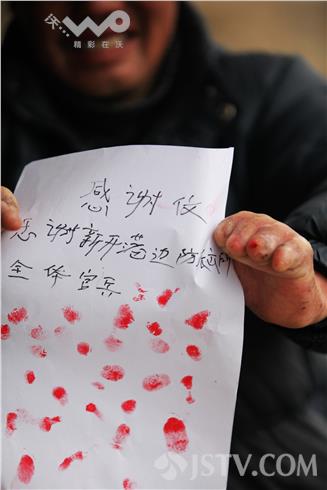 沃...WO
精彩在沃
感谢
谢新开港边防派所
全体官兵
JSTV.COM